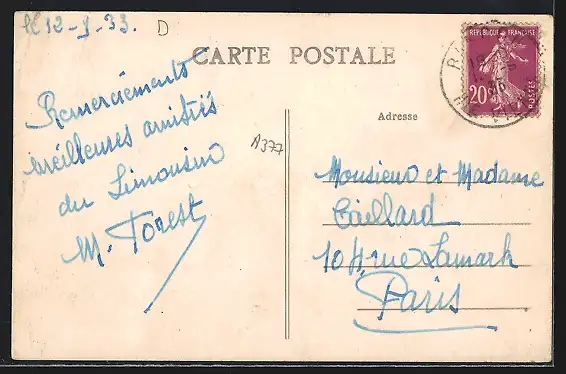 le 12-9-33.
D
CARTE POSTALE
REPUBLIQUE FRANÇAISE
20c
POSTES
Remerciements
meilleures amitiés
du Limousin
M. Forest
A377
Adresse
Monsieur et Madame
Caillard
104 rue Lamark
Paris